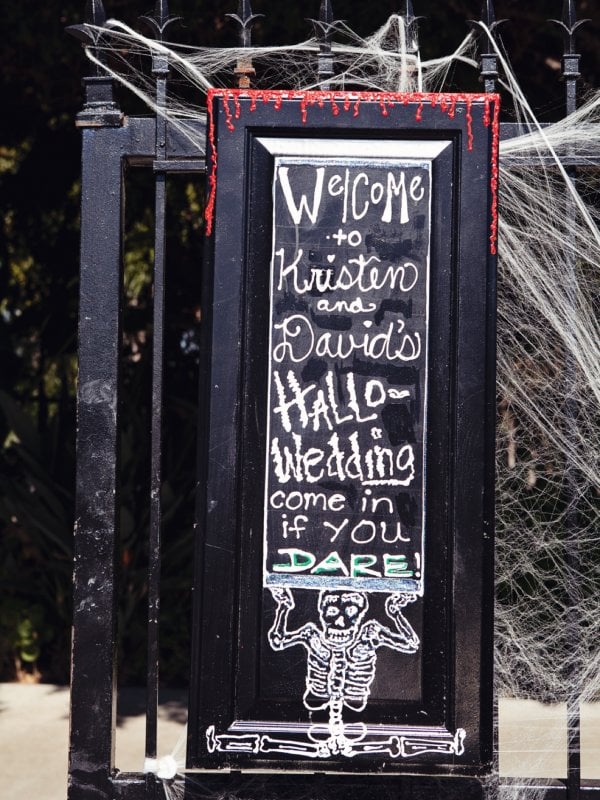 WelCoMe
to
Kristen
and
David's
HALLO-
Wedding
come in
if you
DARE!